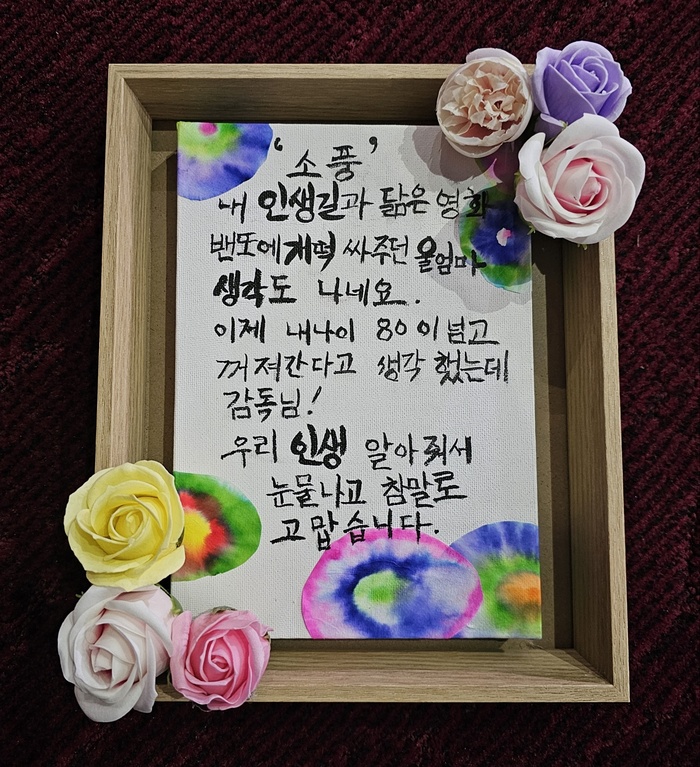 '소풍'
내 인생길과 닮은 영화
밴또에 개떡 싸주던 울엄마
생각도 나네요.
이제 내나이 80이 넘고
꺼져간다고 생각 했는데
감독님!
우리 인생 알아줘서
눈물나고 참말로
고맙습니다.